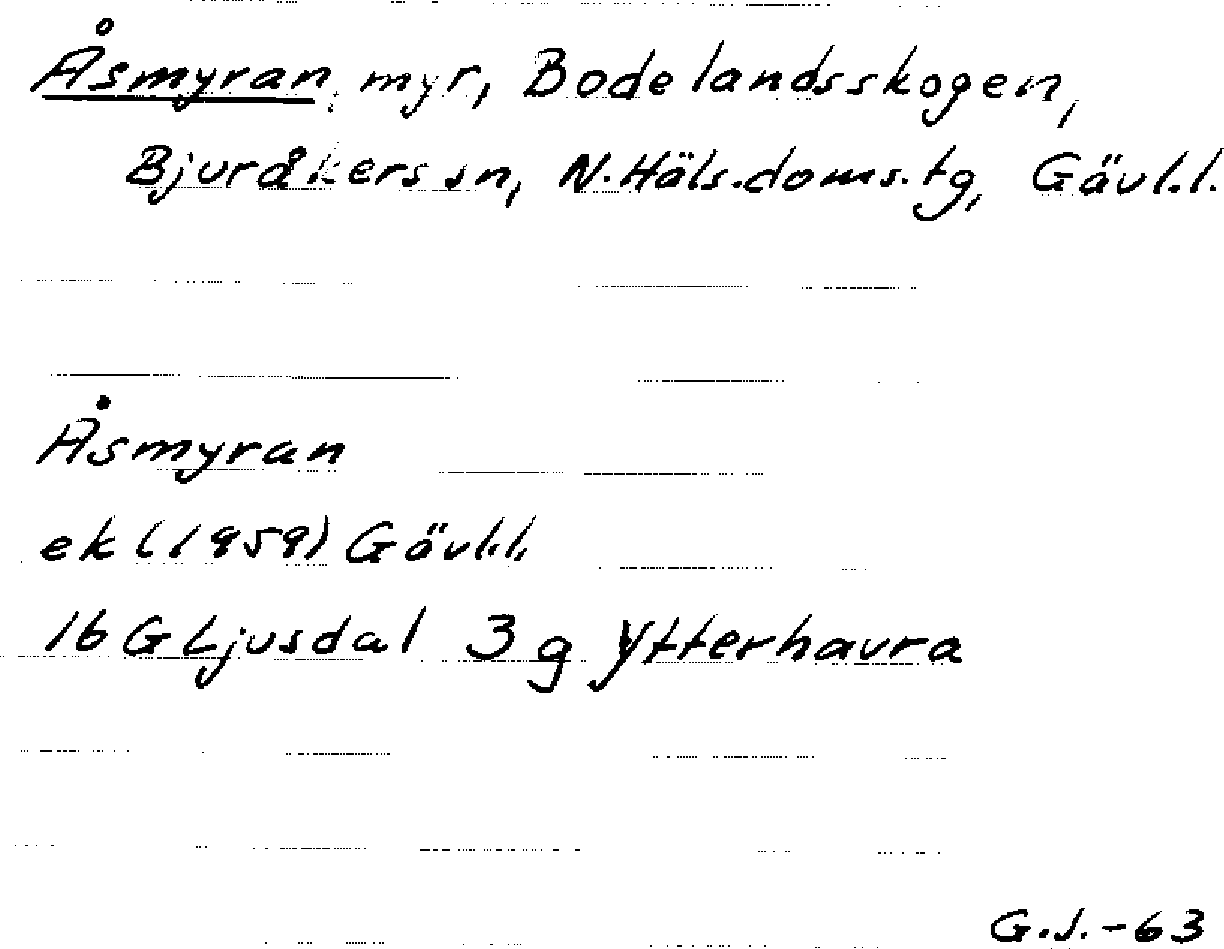 Åsmyran, myr, Bodelandsskogen,
Bjuråkers sn, N.Häls.doms.tg, Gävl.l.
Åsmyran
ek (1959) Gävl.l.
16 G Ljusdal 3 g Ytterhavra
G.J.-63